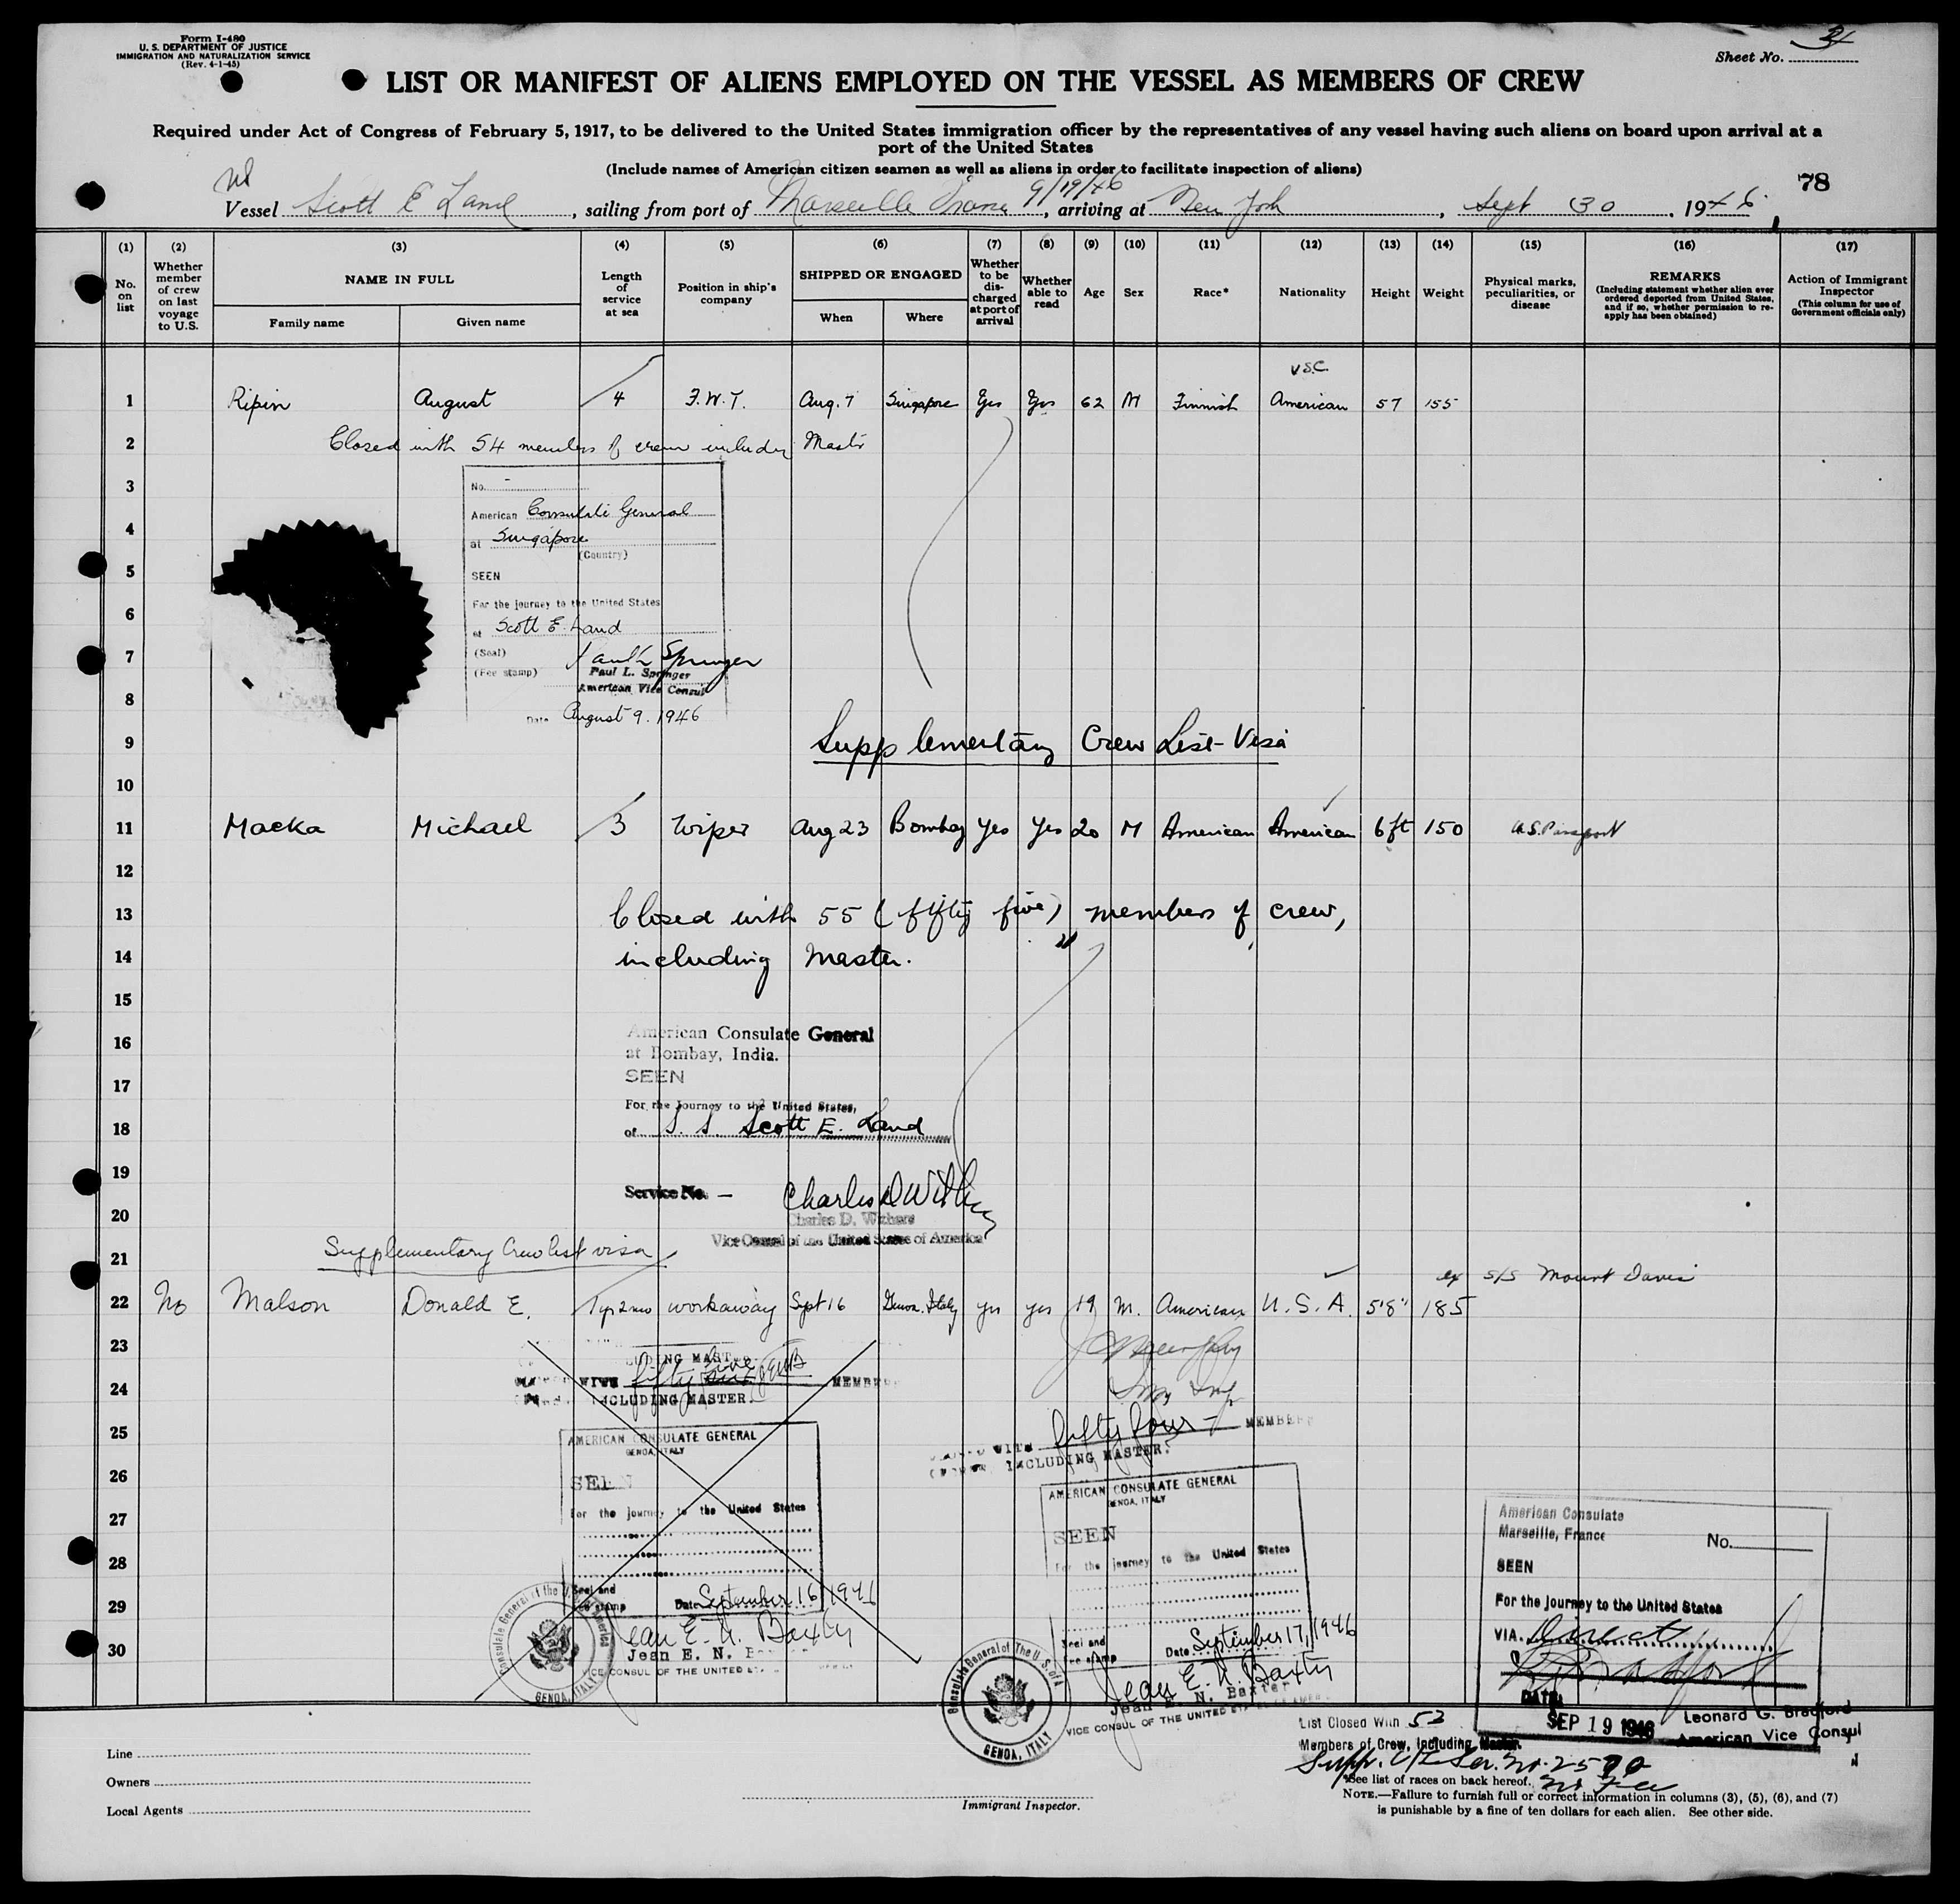 Form I-480
U. S. DEPARTMENT OF JUSTICE
IMMIGRATION AND NATURALIZATION SERVICE
(Rev. 4-1-45)
Sheet No.
LIST OR MANIFEST OF ALIENS EMPLOYED ON THE VESSEL AS MEMBERS OF CREW
Required under Act of Congress of February 5, 1917, to be delivered to the United States immigration officer by the representatives of any vessel having such aliens on board upon arrival at a
port of the United States
(Include names of American citizen seamen as well as aliens in order to facilitate inspection of aliens)
78
9/19/46
Vessel Scott E Land, sailing from port of Marseille France, arriving at New York, Sept 30, 1946.
(1) (2) (3) (4) (5) (6) (7) (8) (9) (10) (11) (12) (13) (14) (15) (16) (17)
No. on list
Whether member of crew on last voyage to U.S.
NAME IN FULL
Family name
Given name
Length of service at sea
Position in ship's company
SHIPPED OR ENGAGED
When
Where
Whether to be discharged at port of arrival
Whether able to read
Age
Sex
Race*
Nationality
Height
Weight
Physical marks, peculiarities, or disease
REMARKS
(Including statement whether alien ever ordered deported from United States, and if so, whether permission to reapply has been obtained)
Action of Immigrant Inspector
(This column for use of Government officials only)
USC
1 Ripin August 4 F.W.T. Aug. 7 Singapore Yes Yes 62 M Finnish American 57 155
2 Closed with 54 members of crew including Master
3
No. -
American Consulate General
4
at Singapore
(Country)
5
SEEN
6
For the journey to the United States
of Scott E. Land
7
(Seal)
(Fee stamp)
Paul L. Springer
American Vice Consul
8
Date August 9. 1946
9 Supplementary Crew List-Visa
10
11 Macka Michael 3 Wiper Aug 23 Bombay Yes Yes 20 M American American 6 ft 150 U.S. Passport
12
13 Closed with 55 (fifty five) members of crew,
14 including Master.
15
16 American Consulate General
at Bombay, India.
17 SEEN
For the Journey to the United States,
18 of S. S. Scott E. Land
19
Service No. - Charles D Withers
20 Charles D. Withers
Vice Consul of the United States of America
21 Supplementary Crew list visa
ex S/S Mount Davis
22 No Malson Donald E. 1 yr 2 mo workaway Sept 16 Genoa. Italy yes yes 19 M. American U. S. A. 5'8" 185
23
INCLUDING MASTER
24 WITH fifty five MEMBERS
INCLUDING MASTER.
25 AMERICAN CONSULATE GENERAL
GENOA, ITALY
26 SEEN
27 For the journey to the United States
28
29 Seal and
Fee stamp
Date September 16, 1946
30 Jean E. N. Baxter
Jean E. N.
VICE CONSUL OF THE UNITED
Consulate General of the U.S. of America
GENOA, ITALY
CLOSED WITH fifty four - MEMBERS
CREW, INCLUDING MASTER.
AMERICAN CONSULATE GENERAL
GENOA, ITALY
SEEN
For the journey to the United States
Seal and
Fee stamp
Date September 17, 1946
Jean E. N. Baxter
Jean E. N. Baxter
VICE CONSUL OF THE UNITED STATES OF AMERICA
Consulate General of The U. S. of A
GENOA, ITALY
American Consulate
Marseille, France
No.
SEEN
For the journey to the United States
VIA. Direct
DATE:
SEP 19 1946
Leonard G. Bradford
American Vice Consul
List Closed With 53
Members of Crew, Including Master.
Line
Owners
Local Agents
Immigrant Inspector.
*See list of races on back hereof.
No Fee
NOTE.—Failure to furnish full or correct information in columns (3), (5), (6), and (7)
is punishable by a fine of ten dollars for each alien. See other side.